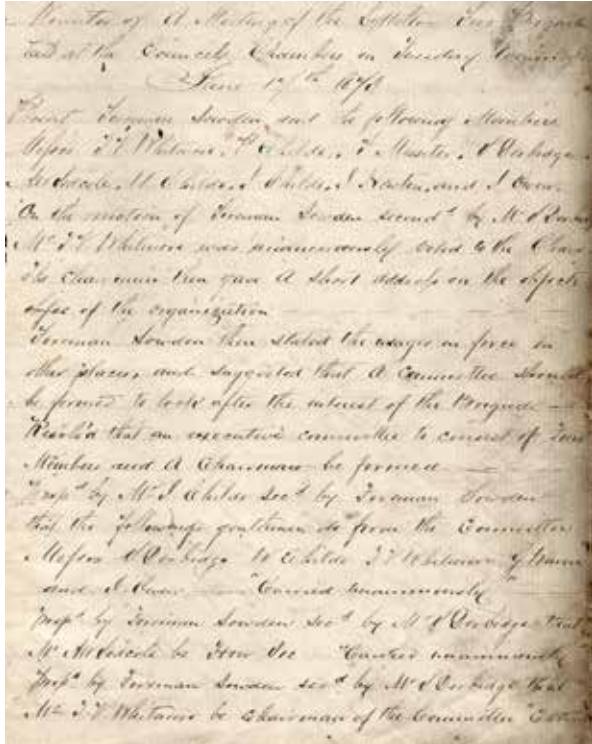 Minutes of A Meeting of the Fire Brigade
held at the Councils Chambers on Tuesday Evening
June 17th 187
Present Foreman Sowden and the following Members
Messrs T V Whitmore, Childs, T Munter, S Dorbidge
W Childs, J Childs, J Newton, and J Owen
On the motion of Foreman Sowden second by Mr S
Mr T V Whitmore was unanimously voted to the Chair
The chairman then gave A short address on the objects
of the organization
Foreman Sowden then stated the usages in force in
other places, and suggested that A Committee should
be formed to look after the interest of the Brigade
Resolvd that an executive committee to consist of four
Members and A Chairman be formed
Propd by Mr J Childs Secd by Foreman Sowden
that the following gentlemen do form the Committee
Messrs S Dorbidge W Childs T V Whitmore
and J Owen Carried unanimously
Propd by Foreman Sowden secd by Mr S Dorbidge that
Mr be Sec Carried unanimously
Propd by Foreman Sowden secd by Mr S Dorbidge that
Mr T V Whitmore be Chairman of the Committee